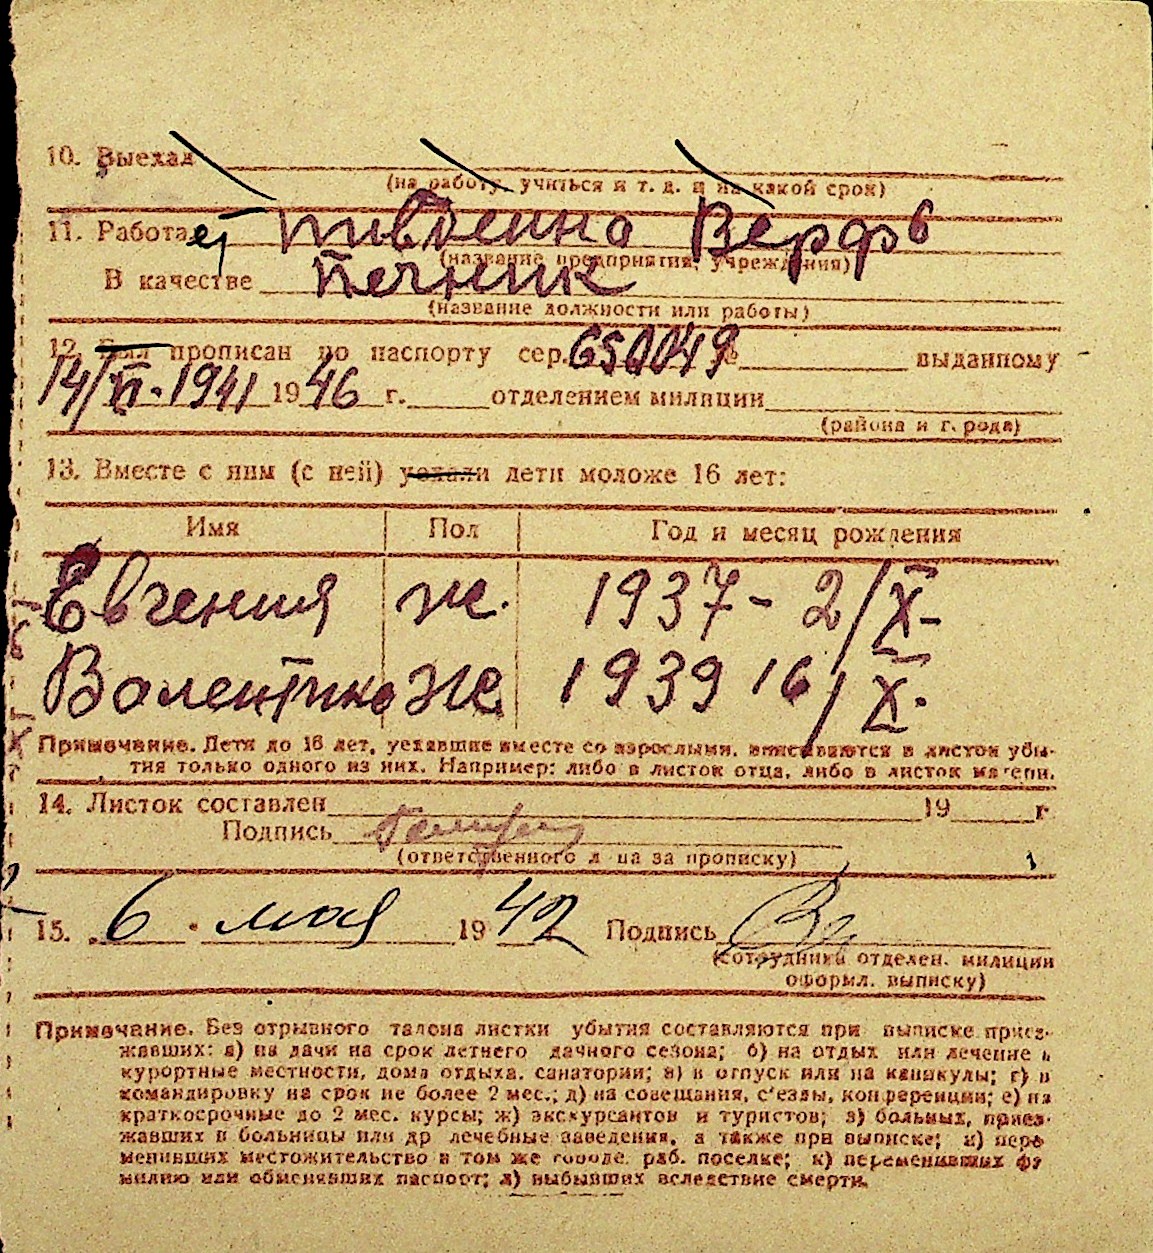 10. Выехал
(на работу, учиться и т. д. и на какой срок)
11. Работает Пивденна Верфь
(название предприятия, учреждения)
В качестве Печник
(название должности или работы)
12. Был прописан по паспорту сер. 650049 № выданному
14/VI. 1941 1946 г. отделением милиции
(района и города)
13. Вместе с ним (с ней) уехали дети моложе 16 лет:
Имя Пол Год и месяц рождения
Евгения ж. 1937 - 2/X-
Валентина же 1939 16/X.
Примечание. Дети до 16 лет, уехавшие вместе со взрослыми, вписываются в листок убы-
тия только одного из них. Например: либо в листок отца, либо в листок матери.
14. Листок составлен 19 г
Подпись
(ответственного лица за прописку)
15. 6 мая 1942 Подпись
(сотрудника отделен. милиции
оформл. выписку)
Примечание. Без отрывного талона листки убытия составляются при выписке приез-
жавших: а) на дачи на срок летнего дачного сезона; б) на отдых или лечение в
курортные местности, дома отдыха, санатории; в) в отпуск или на каникулы; г) в
командировку на срок не более 2 мес.; д) на совещания, с'езды, конференции; е) на
краткосрочные до 2 мес. курсы; ж) экскурсантов и туристов; з) больных, приез-
жавших в больницы или др лечебные заведения, а также при выписке; и) пере-
менивших местожительство в том же городе, раб. поселке; к) переменивших фа
милию или обменявших паспорт; л) выбывших вследствие смерти.